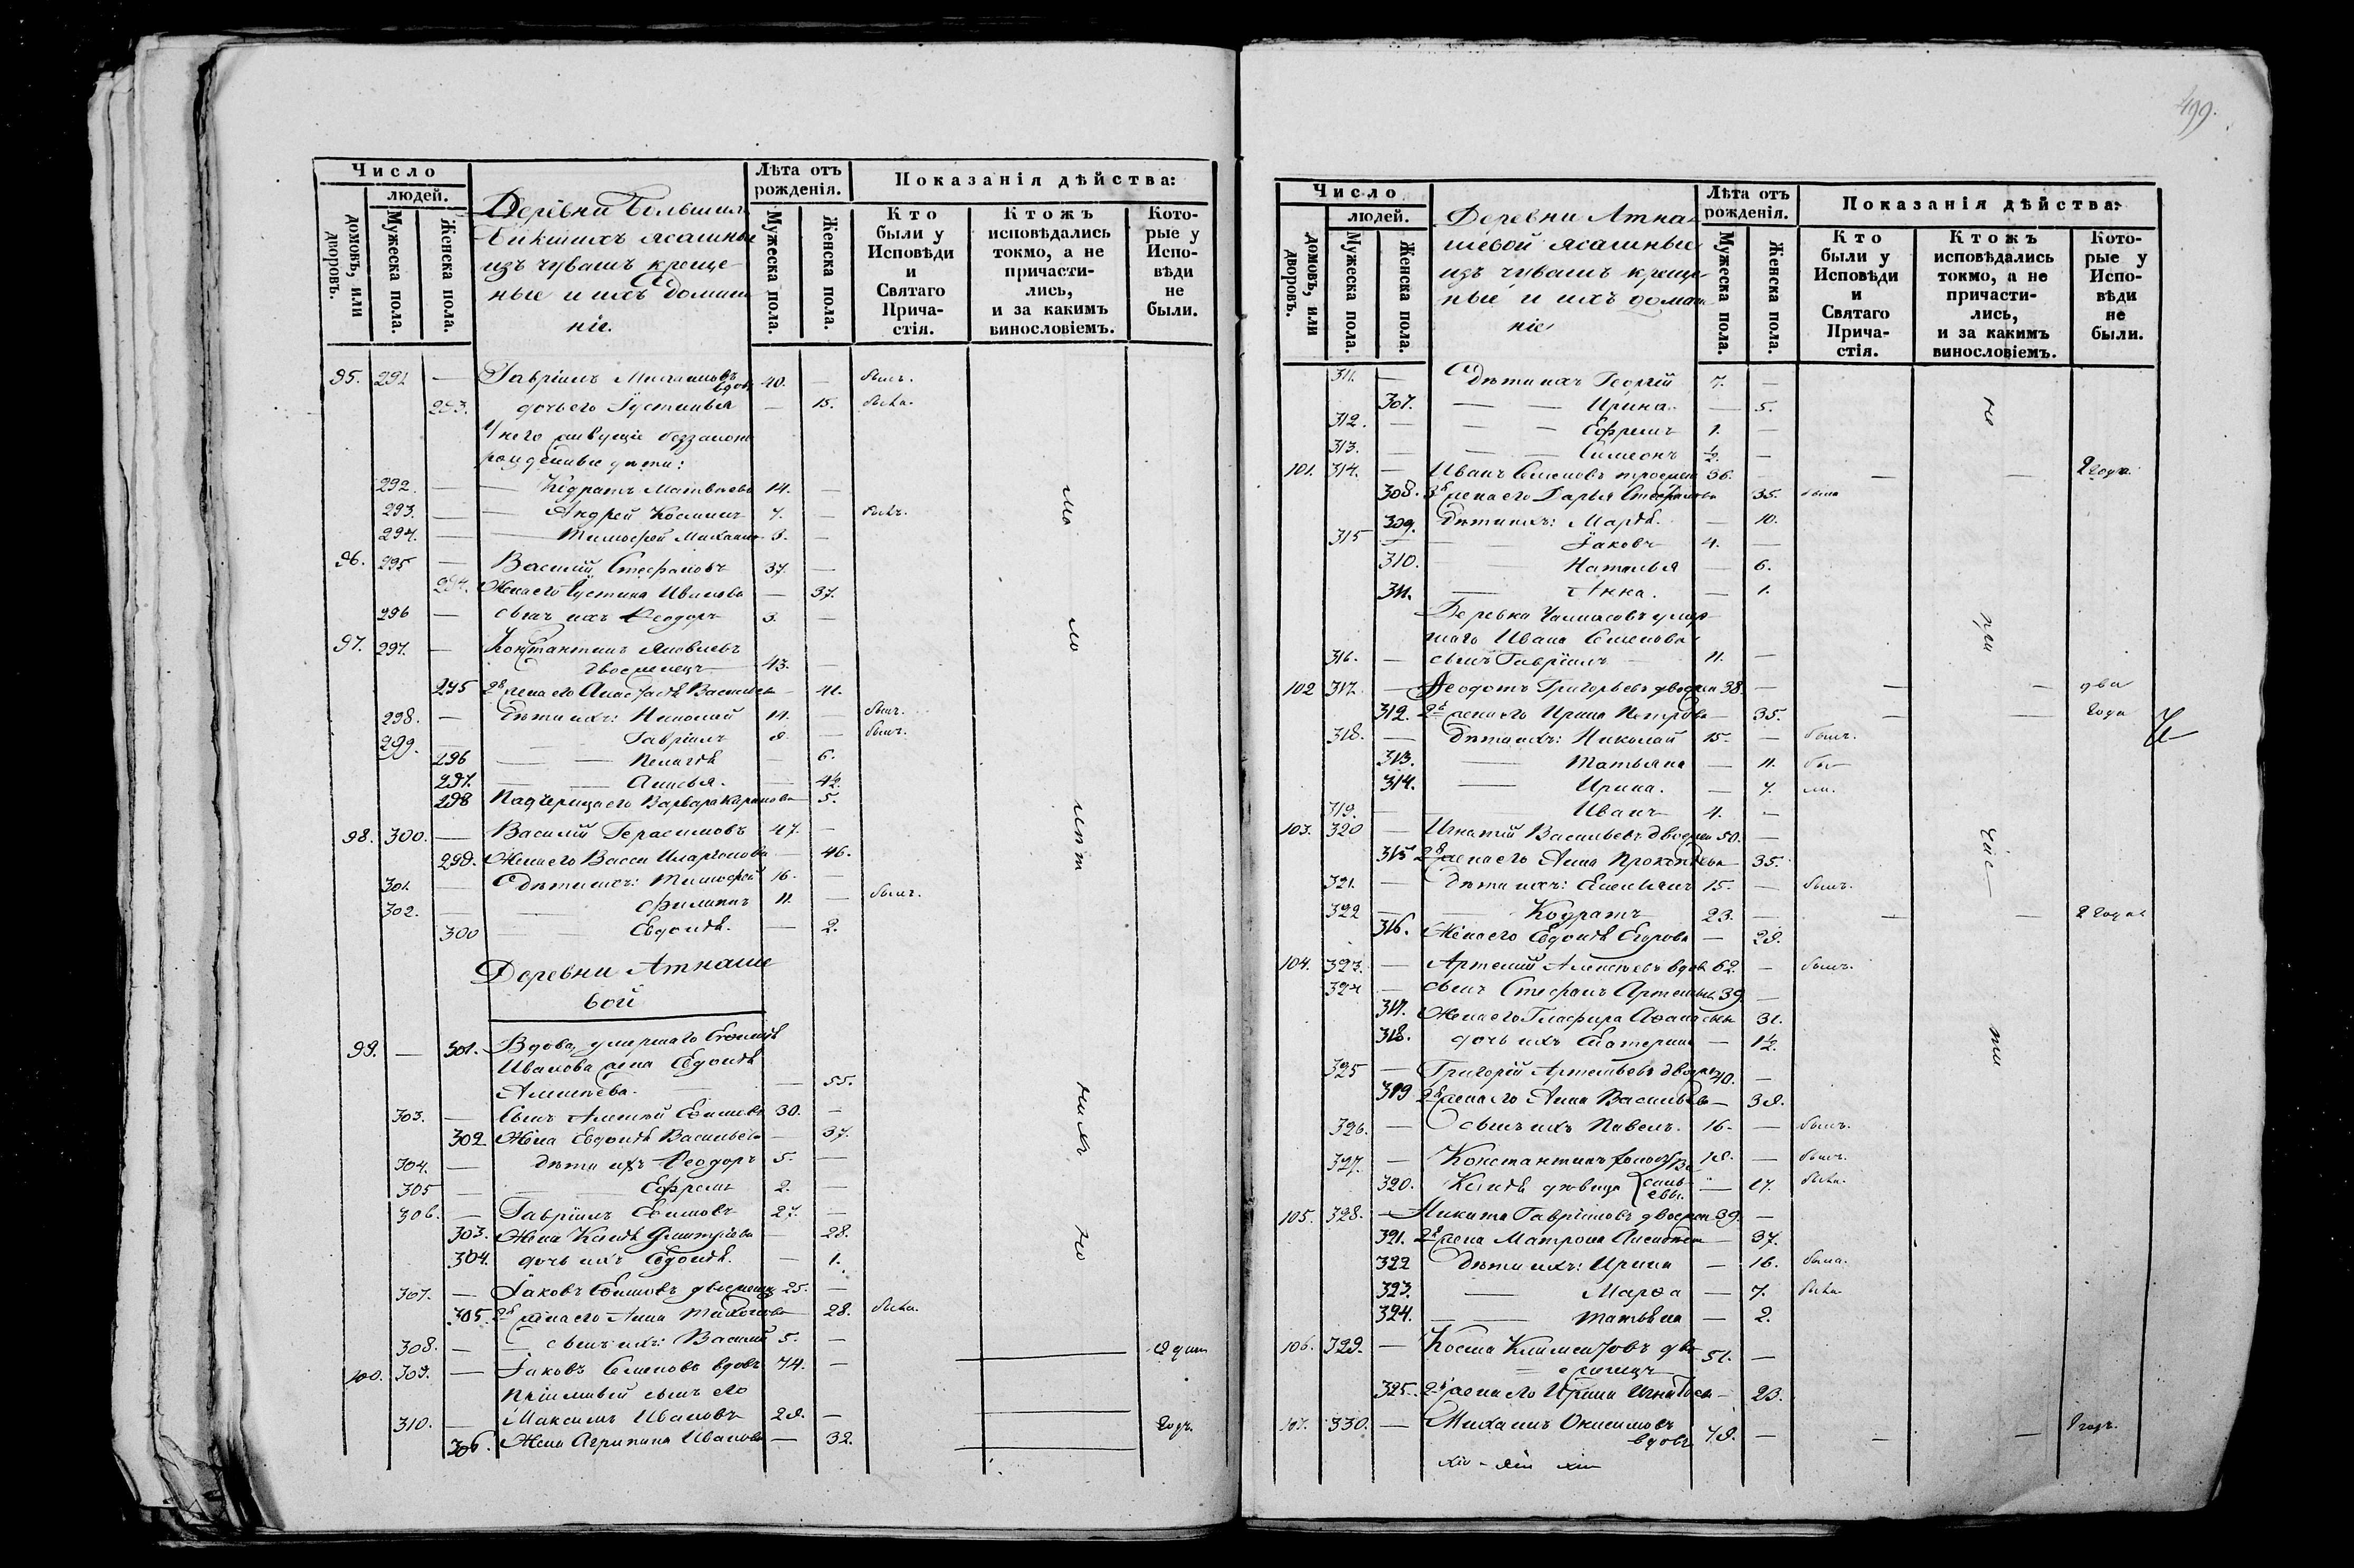 499.
Число
людей.
домовъ, или дворовъ.
Мужеска пола.
Женска пола.
Деревни Большихъ
ясашные
изъ чувашъ креще-
ные и ихъ домаш
ніе.
Лѣта отъ рожденія.
Мужеска пола.
Женска пола.
Показанія дѣйства:
Кто были у Исповѣди и Святаго Прича-стія.
Ктожъ исповѣдались токмо, а не причасти-лись, и за какимъ винословіемъ.
Кото-рые у Испо-вѣди не были.
95. 291 — Гавріилъ вдов 40. — былъ.
293. дочь его Іустинья — 15. была.
У него живущіе беззакон
рожденные дѣти:
292. — — Кодратъ Матвѣевъ 14. —
293. — — Андрей Косминъ 7. — былъ.
294. — — Тимофей Михаил 3. —
96. 295 — Василій Стефановъ 37. —
294. Жена его Іустина Иванова — 37.
296 — сынъ ихъ Ѳеодоръ 3. —
97. 297. — Константинъ Яковлевъ
двоеженецъ 43. —
295 2я жена его Васильева — 41.
298. — Дѣти ихъ: Николай 14. — былъ.
299. — Гавріилъ 9. — былъ.
296 — — Пелагѣя — 6.
297. — — Анисья. — 4½.
298 Падчерица его Варвара — 5.
98. 300. — Василій Герасимовъ 47. —
299. Жена его Васса Иларіонова — 46.
301. — Дѣти ихъ: Тимофей 16. —
302. — — Филиппъ 11. — былъ.
300 — — Евдокія. — 2.
Деревни Атнаше
вой
99. — 301. Вдова, умершаго
Иванова жена Евдокія
Алексѣева. — 55.
303. — Сынъ Алексѣй Ефимовъ 30. —
302 Жена Евдокія Васильева — 37.
304. — дѣти ихъ Ѳеодоръ 5. —
305 — — Ефремъ 2. —
306. — Гавріилъ Ефимовъ 27. —
303. Жена Ксенія Дмитріева — 28.
304. дочь ихъ Евдокія. — 1.
307. — Іаковъ Ефимовъ двоеженец 25. —
305. 2я жена его Анна — 28. была.
308. — сынъ ихъ: Василій 5. —
100. 309. — Іаковъ Семеновъ вдовъ 74. — Одинъ
Пріимный сынъ его
310. — Максимъ Ивановъ 29. — Годъ.
306. Жена Агрипина Иванова — 32.
Ма ло лѣт нихъ но
Число
людей.
домовъ, или дворовъ.
Мужеска пола.
Женска пола.
Деревни Атна-
шевой ясашные
изъ чувашъ креще
ные и ихъ домаш
ніе
Лѣта отъ рожденія.
Мужеска пола.
Женска пола.
Показанія дѣйства:
Кто были у Исповѣди и Святаго Прича-стія.
Ктожъ исповѣдались токмо, а не причасти-лись, и за какимъ винословіемъ.
Кото-рые у Испо-вѣди не были.
311. — дѣти ихъ Георгій 7. —
307. — — Ирина. — 5.
312. — — — Ефремъ 1. —
313. — — Симеонъ ½. —
101. 314. — Иванъ Семеновъ троежен 36. — — — 2 года.
308. 3я жена его Дарья Стефанова 35. была
309. Дѣти ихъ: Марѳа. — 10.
315 — — Іаковъ 4. —
310. Наталья — 6.
311. — Анна. — 1.
Деревни умер
шаго Ивана Семенова
316. — сынъ Гавріилъ 11. —
102 317. — Ѳеодотъ Григорьевъ двоежен 38. — — — два
312. 2я жена его Ирина Петрова — 35. — — года
318. — Дѣти ихъ: Николай 15. — былъ.
313. — Татьяна — 11. бы-
314. — Ирина. — 7. ли.
319. — — Иванъ 4. —
103. 320 — Игнатій Васильевъ двоежен 50. —
315 2я жена его Анна Прокопьева 35.
321. — Дѣти ихъ: Емельянъ 15. — былъ.
322 — Кодратъ 23. — — — 2 года
316. Жена его Евдокія Егорова — 29.
104. 323. — Артемій Алексѣевъ вдовъ 62. — былъ.
324 — сынъ Стефанъ Артемьевъ 39. —
317. Жена его Глафира Аѳанасьева 31.
318. дочь ихъ Екатерина — 1½.
325 — Григорій Артемьевъ двоежен 40. —
319 2я жена его Анна Васильева — 39.
326. — сынъ ихъ Павелъ. 16. — былъ.
327. — Константинъ холост 19. — былъ.
320. Ксенія дѣвица — 17. была.
Ва
силь-
евы.
105. 328. — Никита Гавріиловъ двоежен 39. —
321. 2я жена Матрона — 37.
322 Дѣти ихъ: Ирина — 16. была.
323. — Марѳа — 7. была.
324. — — Татьяна — 2.
106. 329. — Косма Климентовъ дво
еженецъ 51. —
325. 2я жена его Ирина Игнатьева — 23.
107. 330. — Михаилъ Онисимовъ
вдовъ 79. — — — 1 годъ.
но при час ти